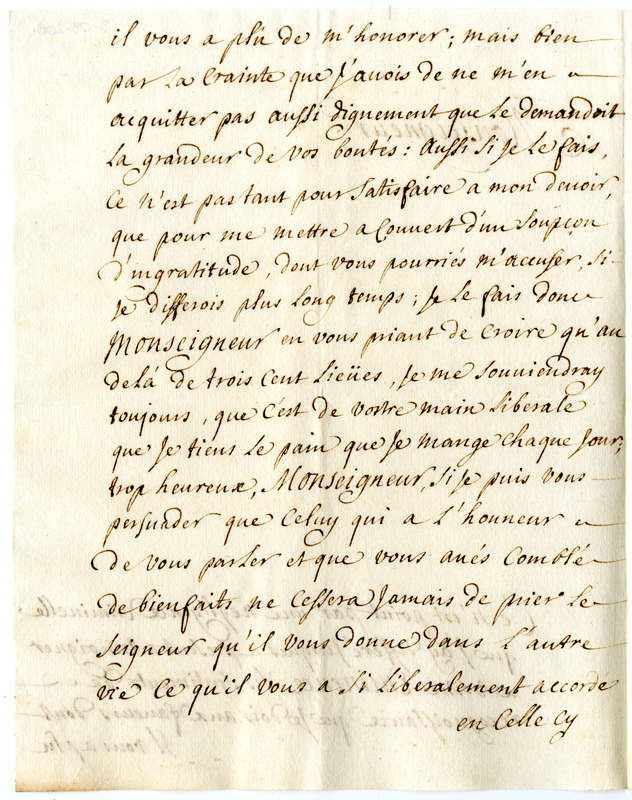 il vous a plû de m'honorer; mais bien
par la Crainte que J'auois de ne m'en
acquitter pas aussi dignement que Le demandoit
La grandeur de vos bontés: Aussi si Je Le fais,
Ce n'est pas tant pour satisfaire a mon deuoir,
que pour me mettre a Couuert d'un soupçon
d'ingratitude, dont vous pourriés m'accuser, si
Je differois plus Long temps; Je Le fais donc
Monseigneur en vous priant de Croire qu'au
delà de trois Cent Lieües, Je me souuiendray
toujours, que C'est de vostre main Liberale
que Je tiens Le pain que Je mange Chaque Jour;
trop heureux, Monseigneur, si Je puis vous
persuader que Celuy qui a L'honneur
de vous parler et que vous aués Comblé
de bienfaits ne Cessera Jamais de prier Le
seigneur qu'il vous donne dans L'autre
vie Ce qu'il vous a si Liberalement accordé
en Celle Cy